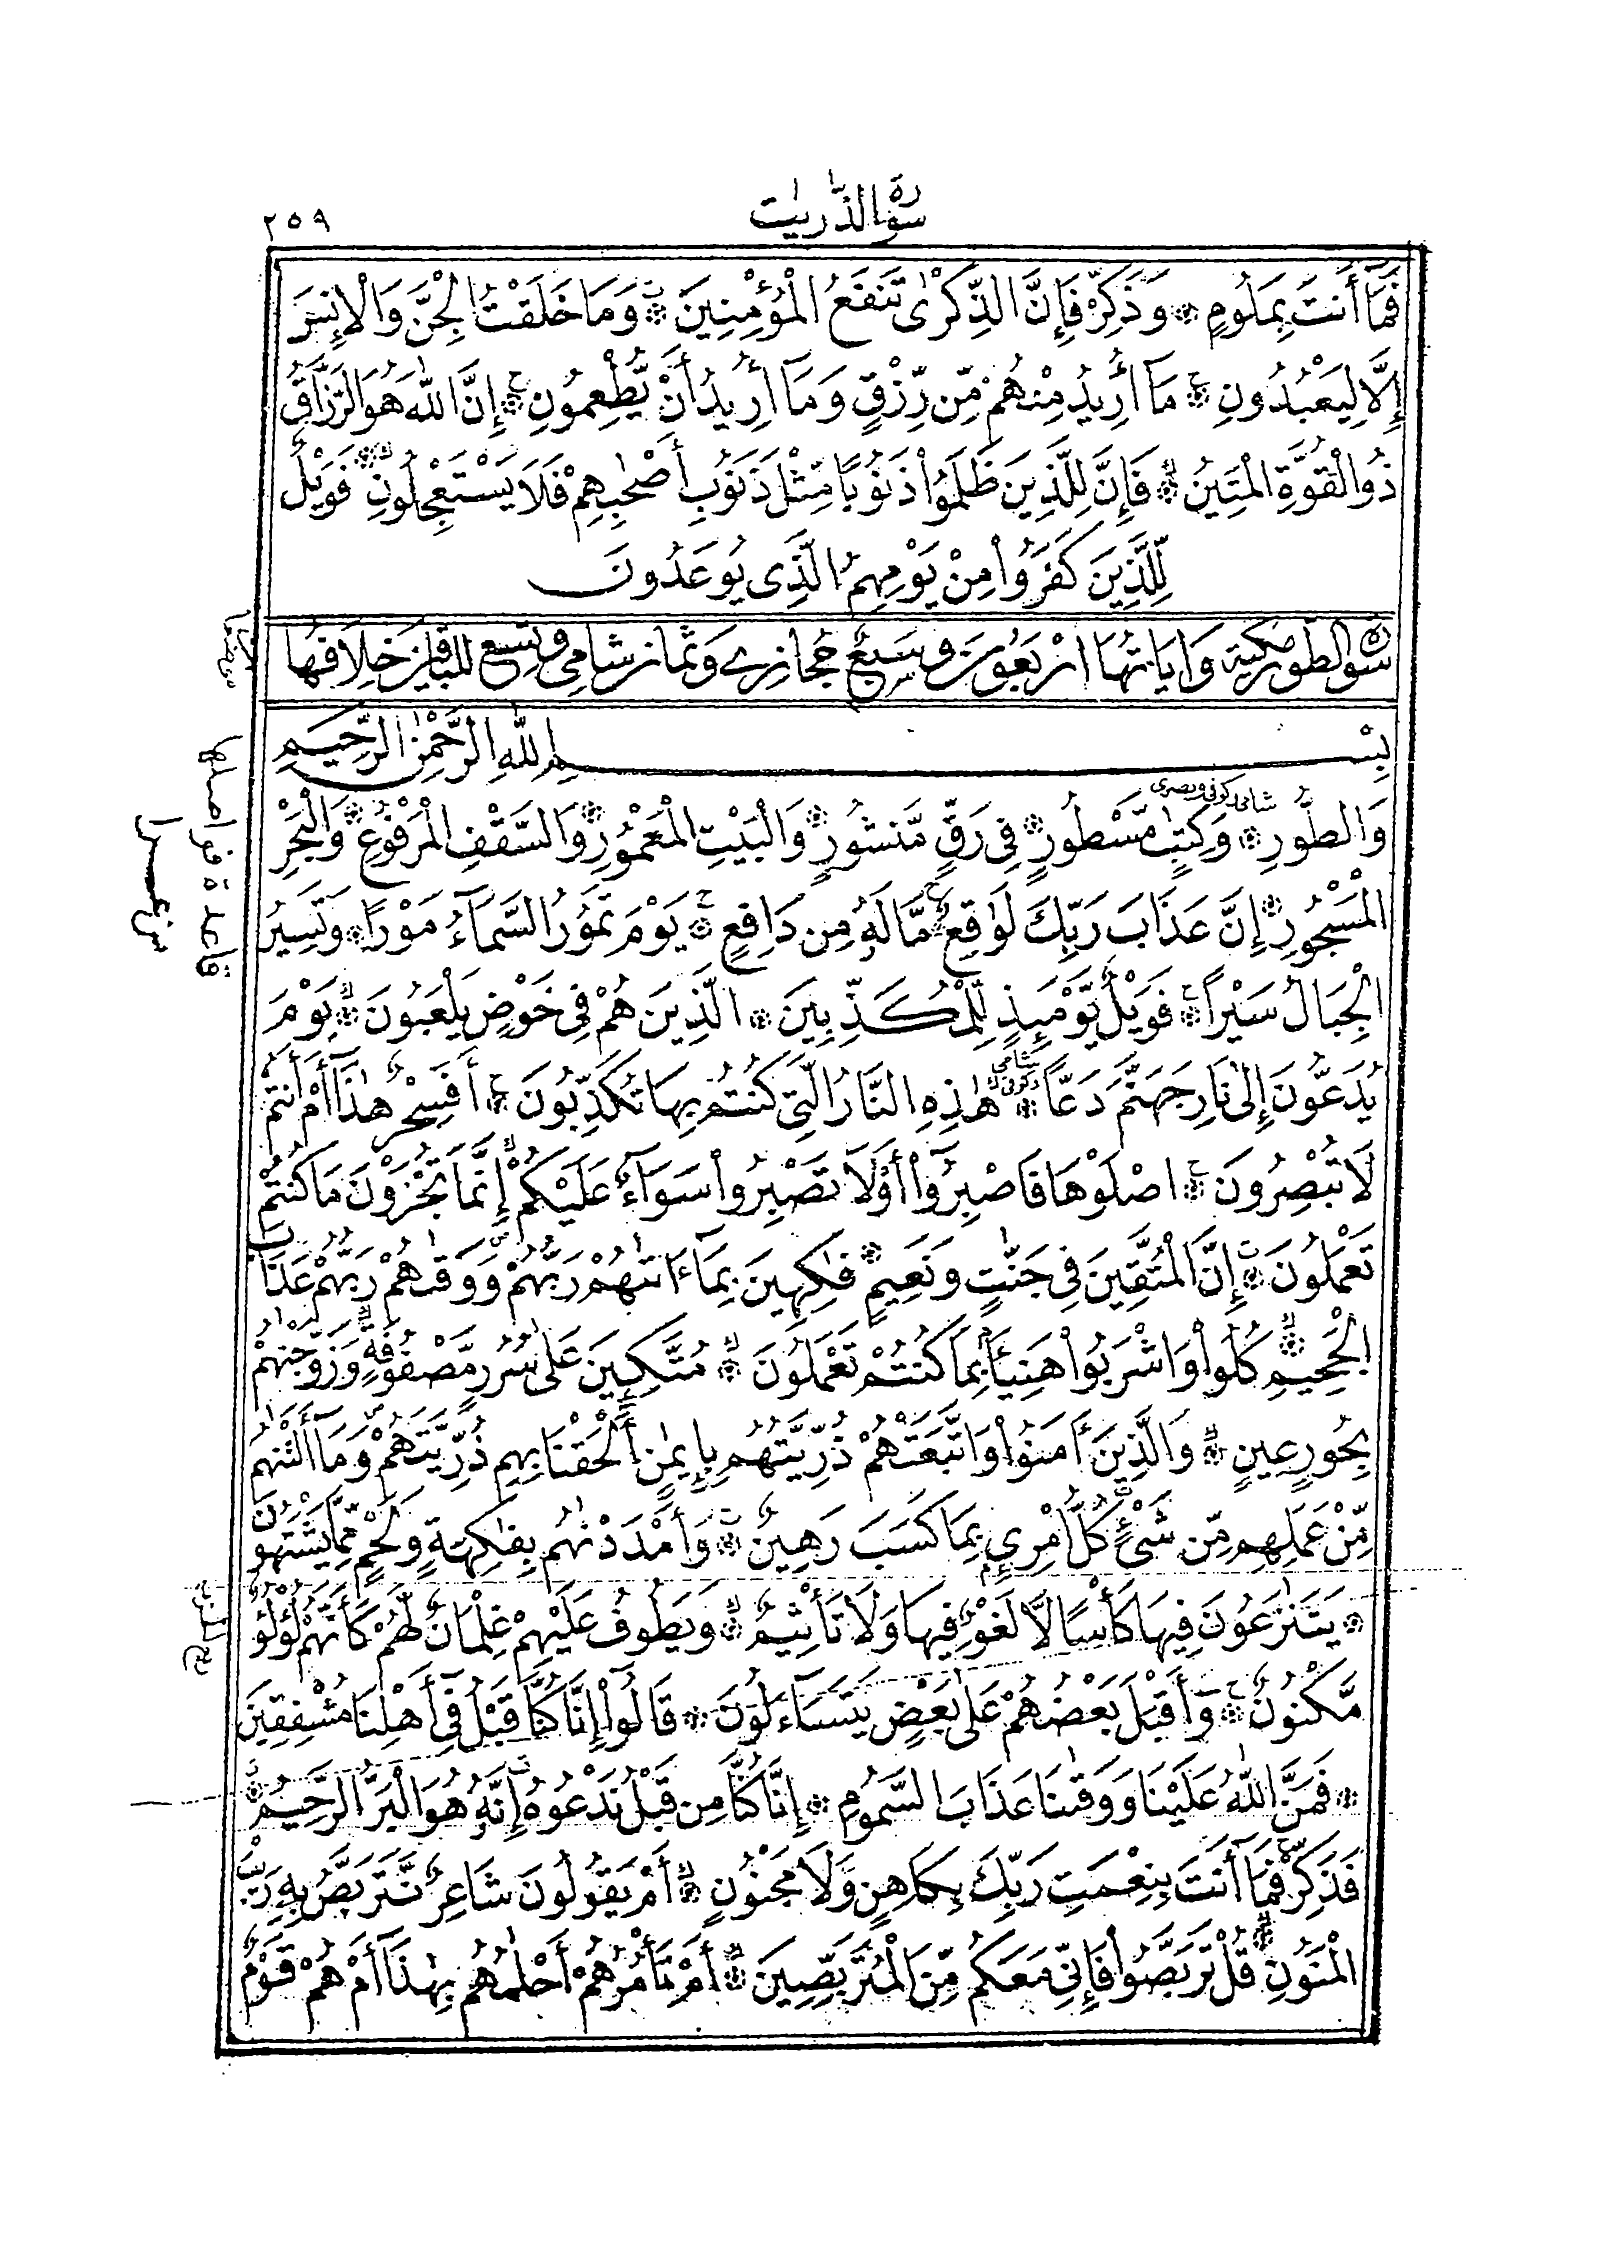 سورة الذّٰريٰت
٢٥٩
فَمَآ أَنتَ بِمَلُومٍ ۞ وَذَكِّرْ فَإِنَّ الذِّكْرٰى تَنفَعُ الْمُؤْمِنِينَ ۞ وَمَا خَلَقْتُ الْجِنَّ وَالْإِنسَ
إِلَّا لِيَعْبُدُونِ ۞ مَآ أُرِيدُ مِنْهُمْ مِّن رِّزْقٍ وَمَآ أُرِيدُ أَنْ يُّطْعِمُونِ ۞ إِنَّ اللّٰهَ هُوَ الرَّزَّاقُ
ذُو الْقُوَّةِ الْمَتِينُ ۞ فَإِنَّ لِلَّذِينَ ظَلَمُوا۟ ذَنُوبًا مِّثْلَ ذَنُوبِ أَصْحٰبِهِمْ فَلَا يَسْتَعْجِلُونِ ۞ فَوَيْلٌ
لِّلَّذِينَ كَفَرُوا۟ مِنْ يَوْمِهِمُ الَّذِى يُوعَدُونَ
سورة الطور مكية وَاياتُهَا ارْبَعُونَ وسَبْعٌ حجازي وَثمَان شامي وتِسْع للباقين خِلَافهَا
بِسْمِ اللّٰهِ الرَّحْمٰنِ الرَّحِيمِ
شامي كوفي وبصرى
وَالطُّورِ ۞ وَكِتٰبٍ مَّسْطُورٍ ۞ فِى رَقٍّ مَّنشُورٍ ۞ وَالْبَيْتِ الْمَعْمُورِ ۞ وَالسَّقْفِ الْمَرْفُوعِ ۞ وَالْبَحْرِ
الْمَسْجُورِ ۞ إِنَّ عَذَابَ رَبِّكَ لَوٰقِعٌ ۞ مَّا لَهُۥ مِن دَافِعٍ ۞ يَوْمَ تَمُورُ السَّمَآءُ مَوْرًا ۞ وَتَسِيرُ
الْجِبَالُ سَيْرًا ۞ فَوَيْلٌ يَّوْمَئِذٍ لِّلْمُكَذِّبِينَ ۞ الَّذِينَ هُمْ فِى خَوْضٍ يَلْعَبُونَ ۞ يَوْمَ
شامي
وكوفي
يُدَعُّونَ إِلٰى نَارِ جَهَنَّمَ دَعًّا ۞ هٰذِهِ النَّارُ الَّتِى كُنتُم بِهَا تُكَذِّبُونَ ۞ أَفَسِحْرٌ هٰذَآ أَمْ أَنتُمْ
لَا تُبْصِرُونَ ۞ اصْلَوْهَا فَاصْبِرُوٓا۟ أَوْ لَا تَصْبِرُوا۟ سَوَآءٌ عَلَيْكُمْ إِنَّمَا تُجْزَوْنَ مَا كُنتُمْ
تَعْمَلُونَ ۞ إِنَّ الْمُتَّقِينَ فِى جَنّٰتٍ وَنَعِيمٍ ۞ فٰكِهِينَ بِمَآ ءَاتٰىهُمْ رَبُّهُمْ وَوَقٰىهُمْ رَبُّهُمْ عَذَابَ
الْجَحِيمِ ۞ كُلُوا۟ وَاشْرَبُوا۟ هَنِيٓئًا بِمَا كُنتُمْ تَعْمَلُونَ ۞ مُتَّكِـِٔينَ عَلٰى سُرُرٍ مَّصْفُوفَةٍ وَزَوَّجْنٰهُمْ
بِحُورٍ عِينٍ ۞ وَالَّذِينَ ءَامَنُوا۟ وَاتَّبَعَتْهُمْ ذُرِّيَّتُهُم بِإِيمٰنٍ أَلْحَقْنَا بِهِمْ ذُرِّيَّتَهُمْ وَمَآ أَلَتْنٰهُم
مِّنْ عَمَلِهِم مِّن شَىْءٍ كُلُّ امْرِئٍ بِمَا كَسَبَ رَهِينٌ ۞ وَأَمْدَدْنٰهُم بِفٰكِهَةٍ وَلَحْمٍ مِّمَّا يَشْتَهُونَ
۞ يَتَنٰزَعُونَ فِيهَا كَأْسًا لَّا لَغْوٌ فِيهَا وَلَا تَأْثِيمٌ ۞ وَيَطُوفُ عَلَيْهِمْ غِلْمَانٌ لَّهُمْ كَأَنَّهُمْ لُؤْلُؤٌ
مَّكْنُونٌ ۞ وَأَقْبَلَ بَعْضُهُمْ عَلٰى بَعْضٍ يَتَسَآءَلُونَ ۞ قَالُوٓا۟ إِنَّا كُنَّا قَبْلُ فِىٓ أَهْلِنَا مُشْفِقِينَ
۞ فَمَنَّ اللّٰهُ عَلَيْنَا وَوَقٰىنَا عَذَابَ السَّمُومِ ۞ إِنَّا كُنَّا مِن قَبْلُ نَدْعُوهُ إِنَّهُۥ هُوَ الْبَرُّ الرَّحِيمُ ۞
فَذَكِّرْ فَمَآ أَنتَ بِنِعْمَتِ رَبِّكَ بِكَاهِنٍ وَلَا مَجْنُونٍ ۞ أَمْ يَقُولُونَ شَاعِرٌ نَّتَرَبَّصُ بِهِۦ رَيْبَ
الْمَنُونِ ۞ قُلْ تَرَبَّصُوا۟ فَإِنِّى مَعَكُم مِّنَ الْمُتَرَبِّصِينَ ۞ أَمْ تَأْمُرُهُمْ أَحْلٰمُهُم بِهٰذَآ أَمْ هُمْ قَوْمٌ